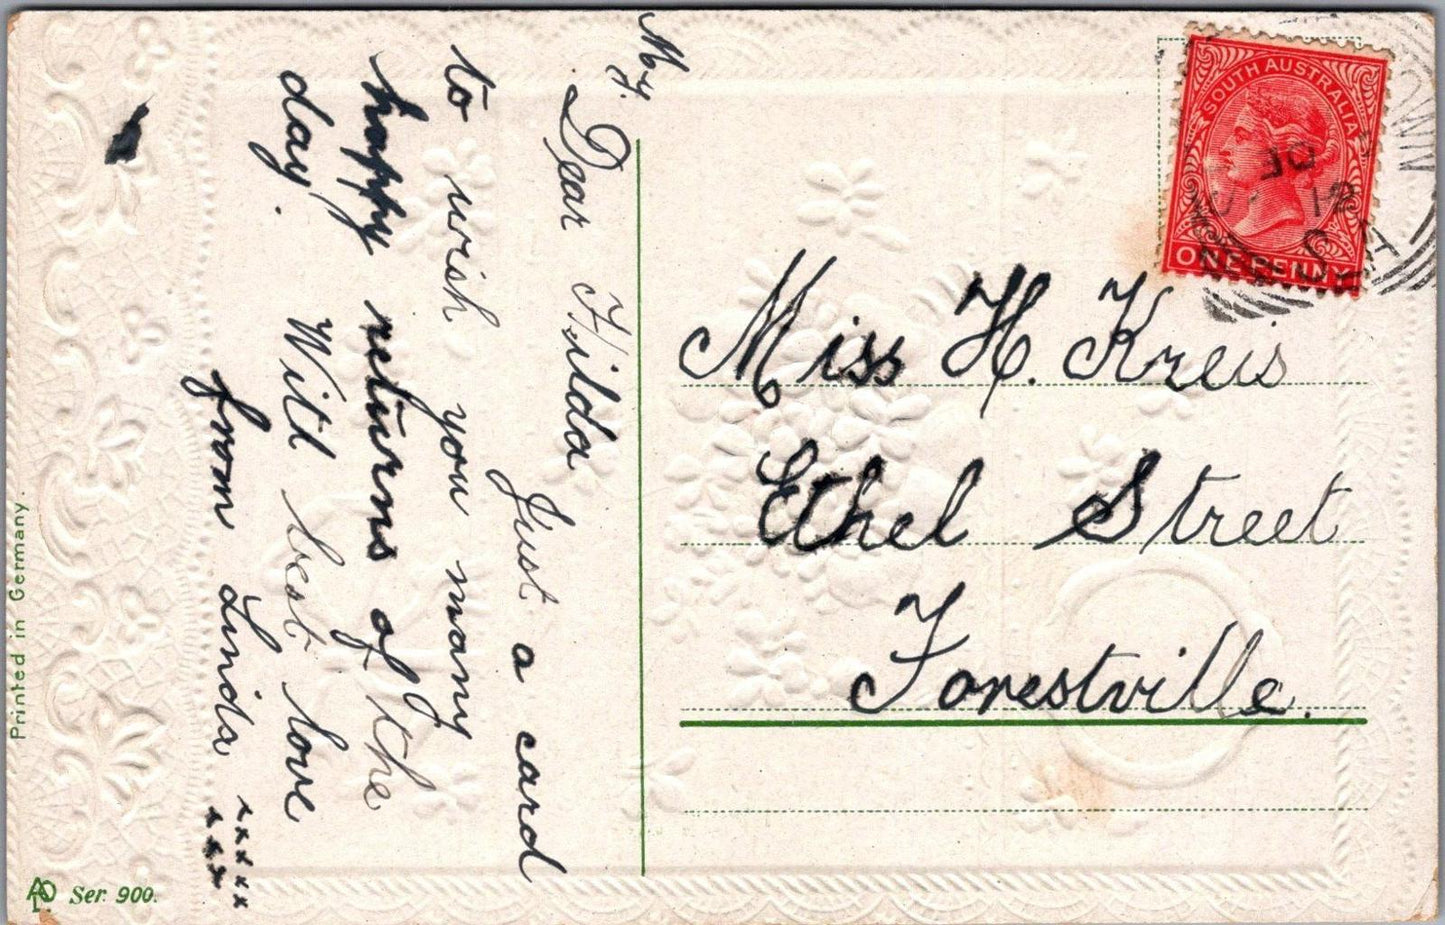 My.
Dear Hilda
Just a card
to wish you many
happy returns of the
day. With best love
from Linda
x x x x x
x x x
Miss H. Kreis
Ethel Street
Forestville.
SOUTH AUSTRALIA
ONE PENNY
JO
12
Printed in Germany.
Ser. 900.